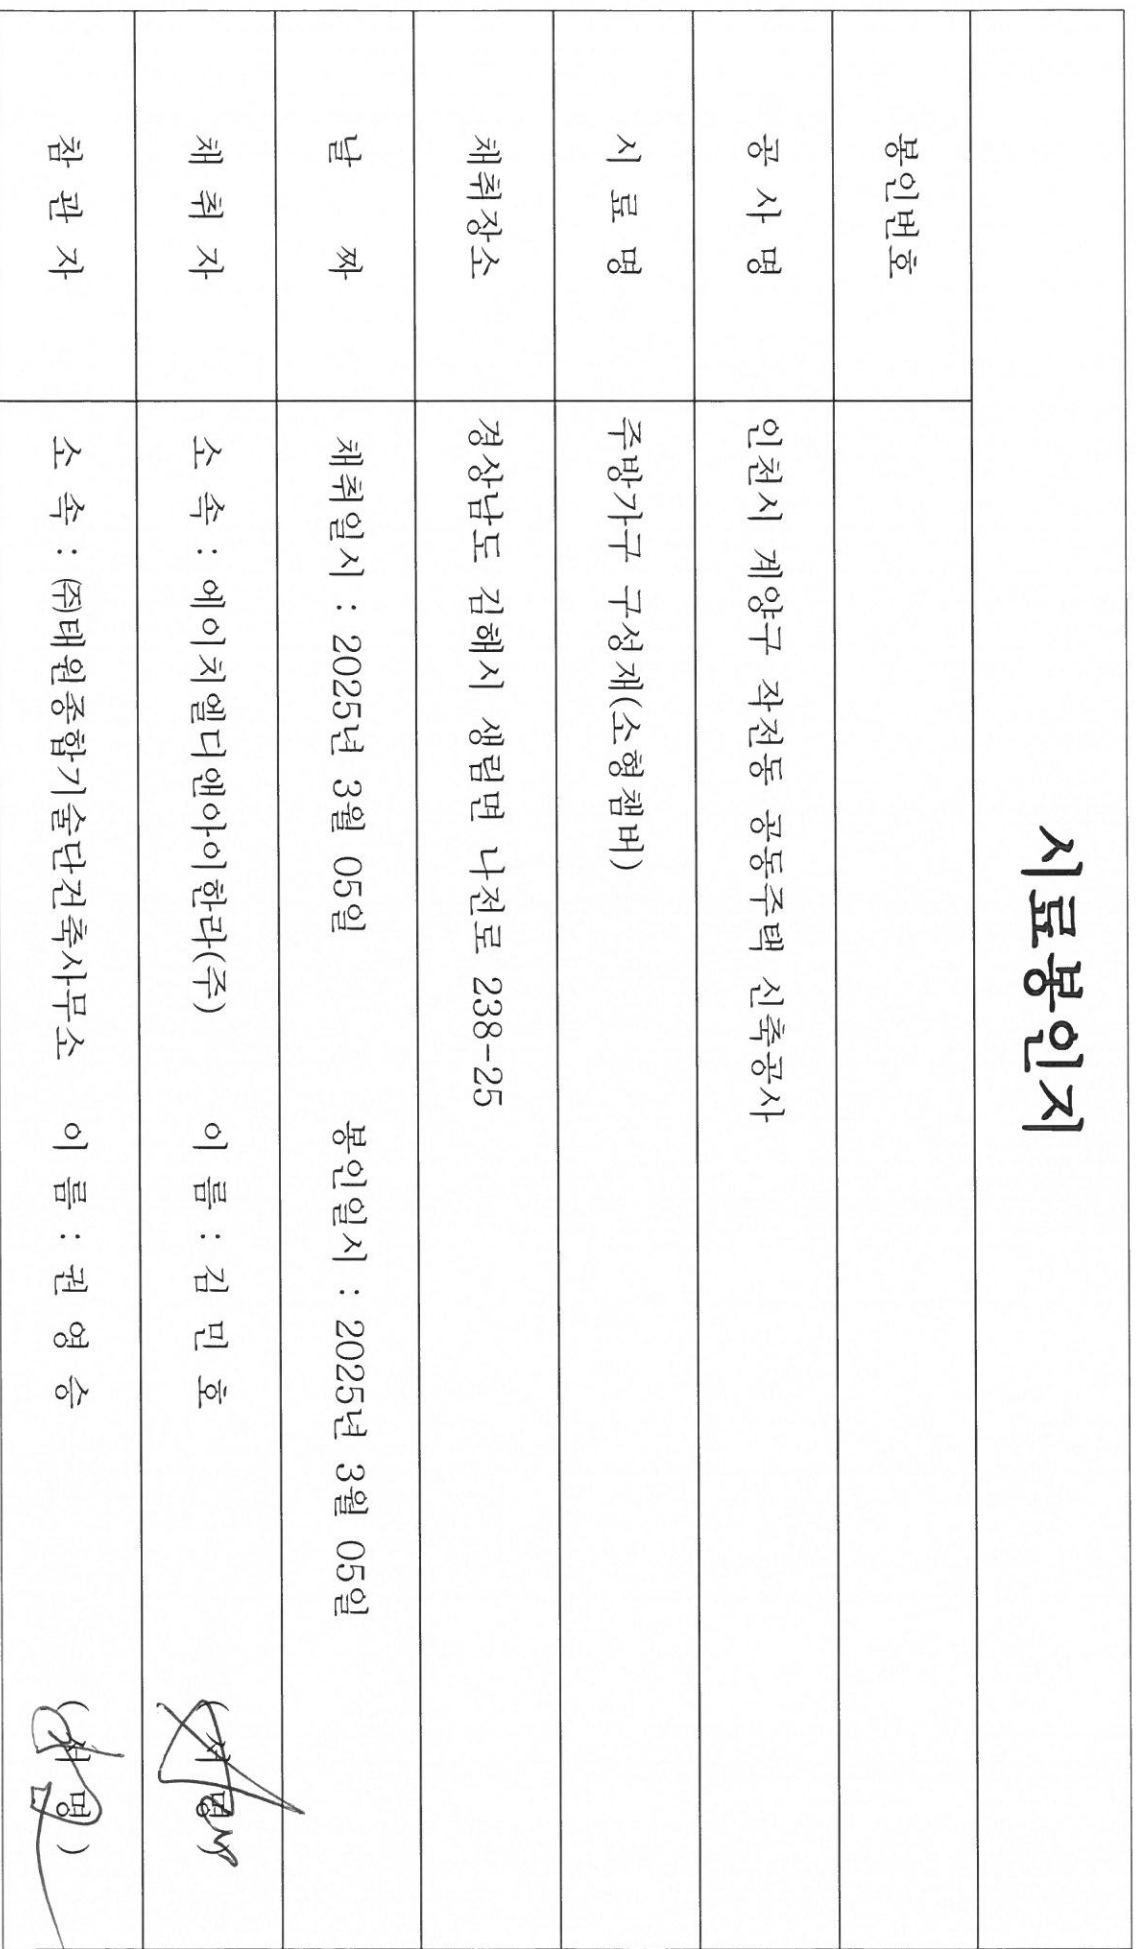 시료봉인지
봉인번호
공 사 명 인천시 계양구 작전동 공동주택 신축공사
시 료 명 주방가구 구성재(소형챔버)
채취장소 경상남도 김해시 생림면 나전로 238-25
날 짜 채취일시 : 2025년 3월 05일 봉인일시 : 2025년 3월 05일
채 취 자 소 속 : 에이치엘디앤아이한라(주) 이 름 : 김 민 호 (서 명)
참 관 자 소 속 : ㈜태원종합기술단건축사무소 이 름 : 권 영 승 (서 명)